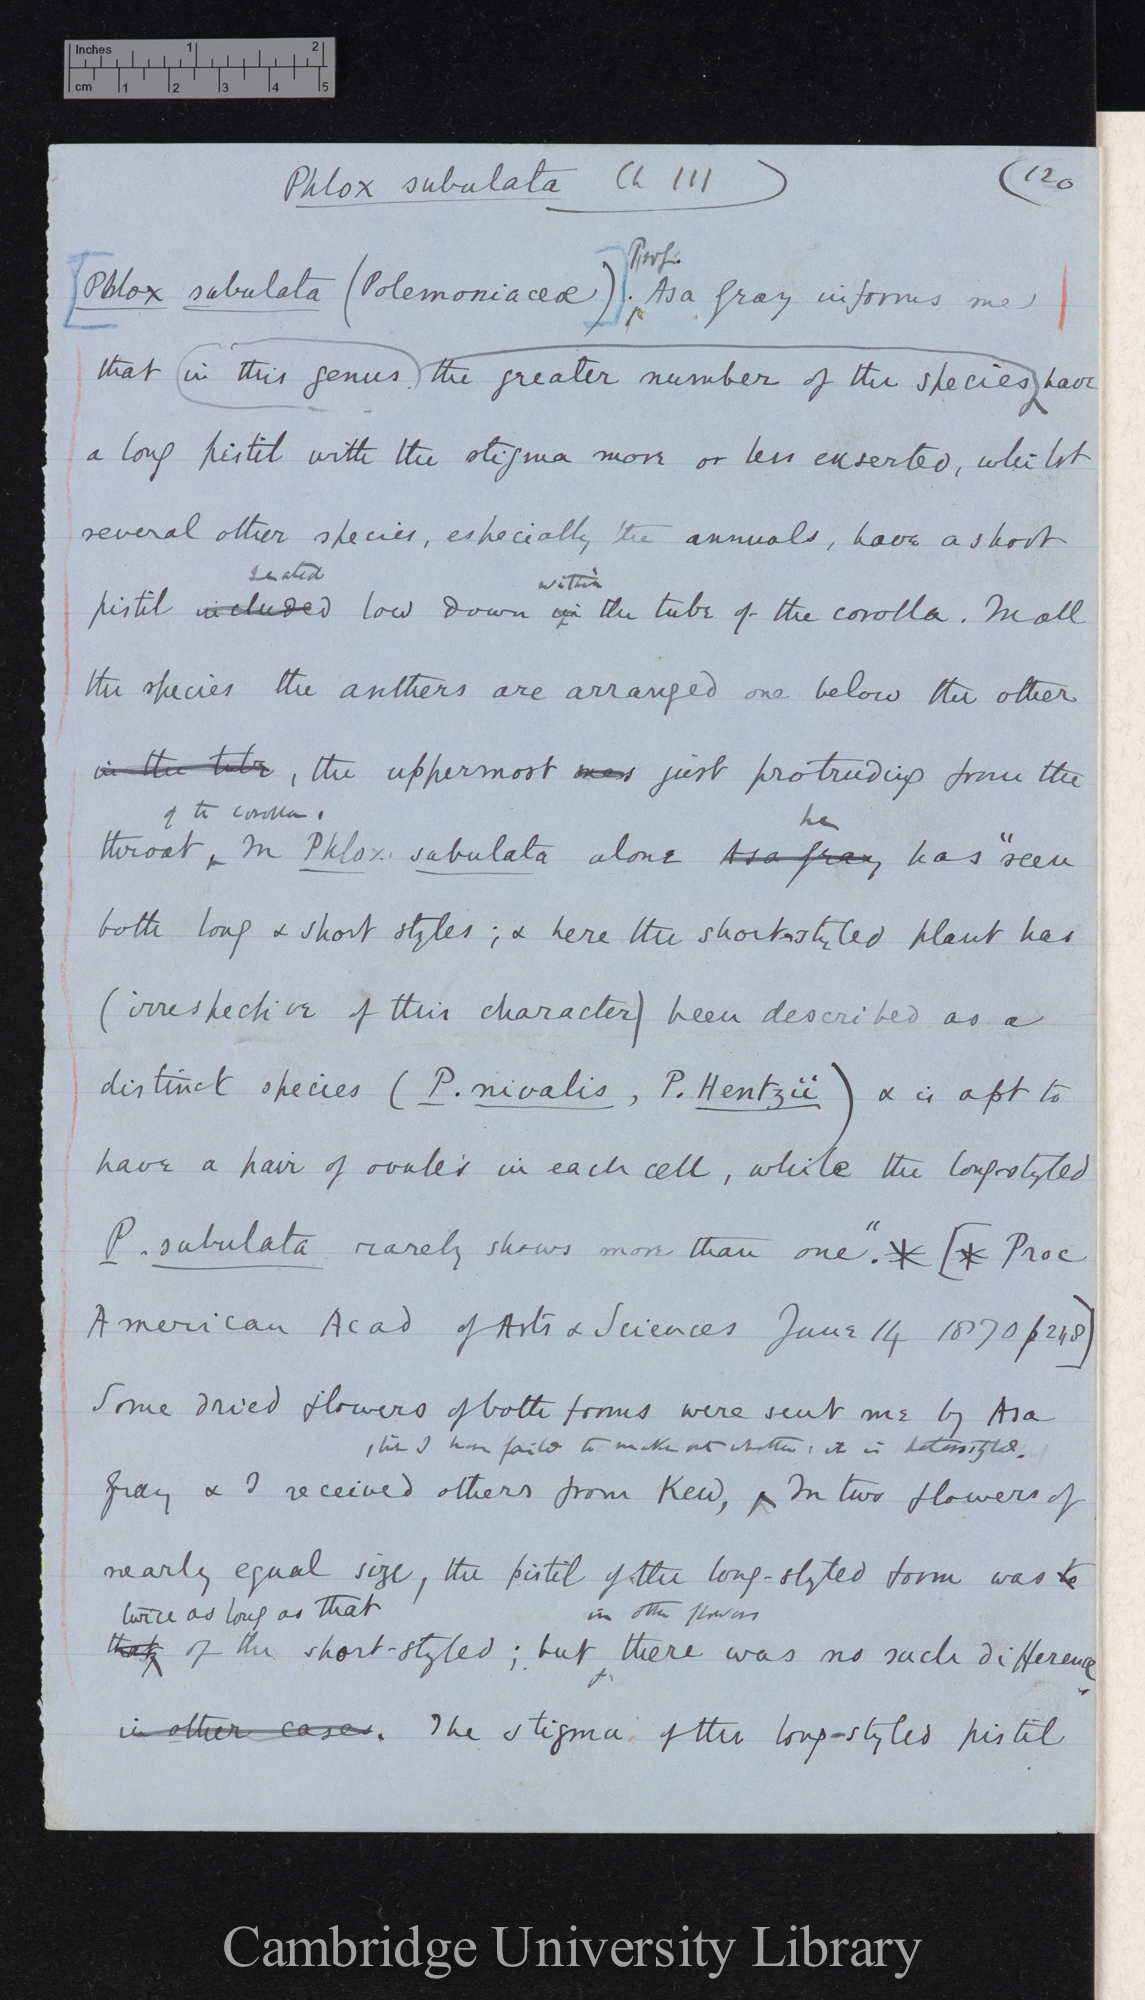 Inches 1 2
cm 1 2 3 4 5
Phlox subulata Ch III
(120
Prof.
[Phlox subulata (Polemoniaceæ)]. Asa Gray informs me
that in this genus the greater number of the species have
a long pistil with the stigma more or less exserted, whilst
several other species, especially the annuals, have a short
seated within
pistil included low down in the tube of the corolla. In all
the species the anthers are arranged one below the other
in the tube, the uppermost just protruding from the
of the corolla. he
throat, In Phlox subulata alone Asa Gray has "seen
both long & short styles; & here the short-styled plant has
(irrespective of this character) been described as a
distinct species (P. nivalis, P. Hentzii) & is apt to
have a pair of ovules in each cell, while the long-styled
P. subulata rarely shows more than one".* [* Proc
American Acad of Arts & Sciences June 14 1870 p 248)]
Some dried flowers of both forms were sent me by Asa
, but I have failed to make out whether it is heterostyled.
Gray & I received others from Kew, In two flowers of
nearly equal size, the pistil of the long-styled form was to
twice as long as that in other flowers
that of the short-styled; but there was no such difference
in other cases. The stigma of the long-styled pistil
Cambridge University Library